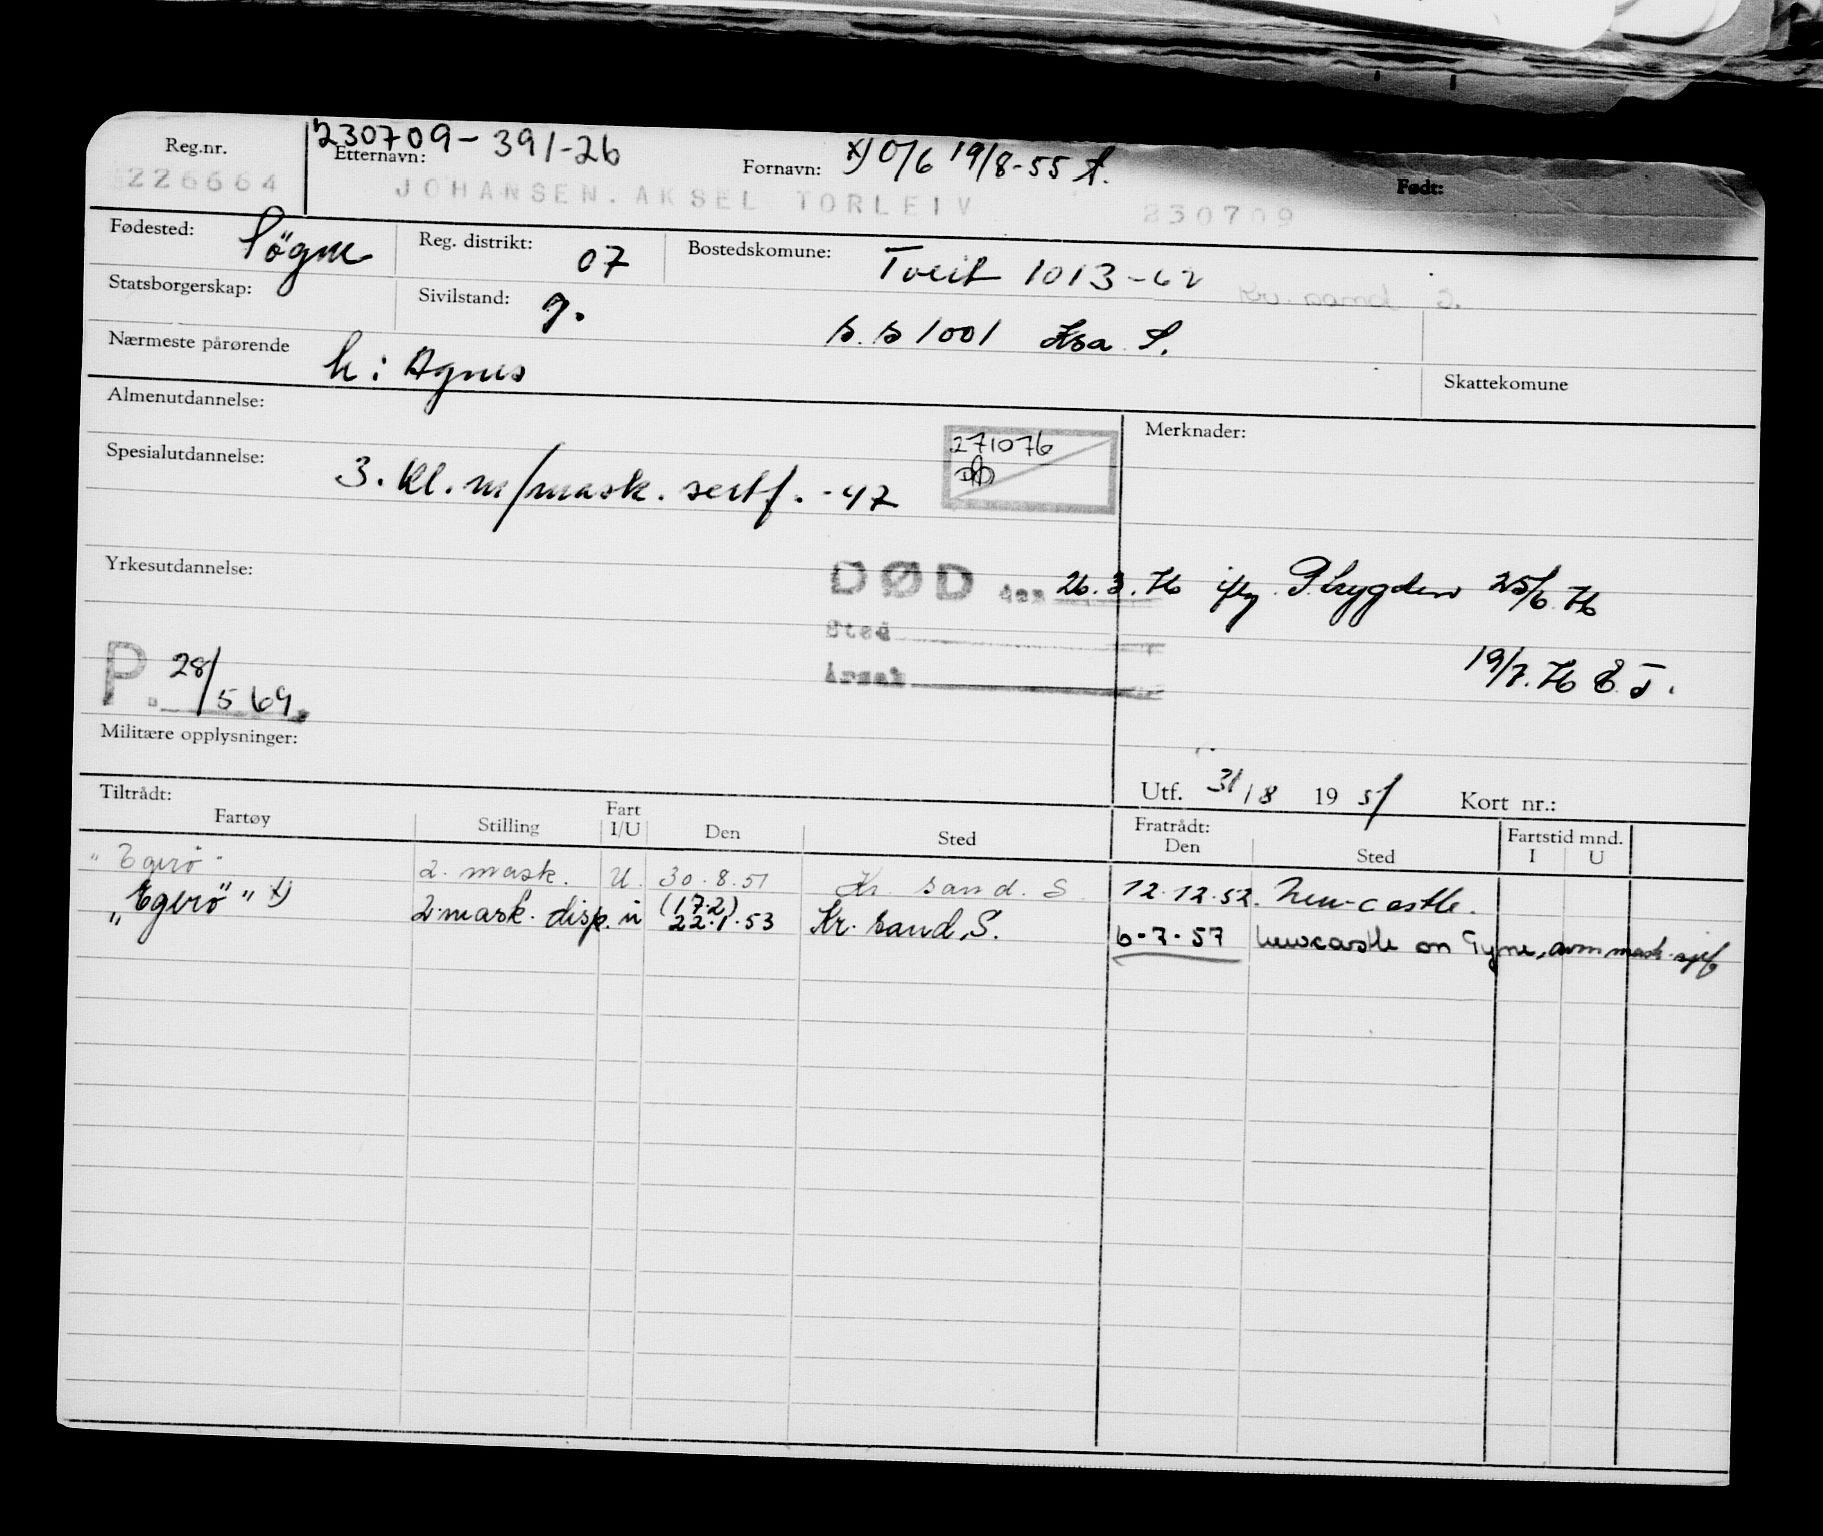 230709-391-26
Reg.nr. Etternavn: Fornavn: x) O/6 19/8-55 Født:
226664 JOHANSEN.AKSEL TORLEIV 230709
Fødested: Søgne Reg. distrikt: 07 Bostedskomune: Tveit 1013-62 Kr. sand S.
Statsborgerskap: Sivilstand: g. 1001 Krsa S.
Nærmeste pårørende h: Agnes Skattekomune
Almenutdannelse: Merknader:
271076
Spesialutdannelse: 3. kl. m/mask. sertf. -47
Yrkesutdannelse: DØD den 26.3.76 iflg. P.trygden 25/6 76
Sted
Årsak 19/7.76 E.T.
P. 28/5 69.
Militære opplysninger:
Utf. 31/8 1951 Kort nr.:
Tiltrådt: Fratrådt: Fartstid mnd.
Fartøy Stilling Fart I/U Den Sted Den Sted I U
"Egerö" 2. mask. U. 30.8.51 Kr. sand. S 12.12.52. New-castle.
"Egerö" x) 2.mask. disp. u (17.2) 22.1.53 Kr. sand, S. 6-7-57 Newcastle on Tyne,